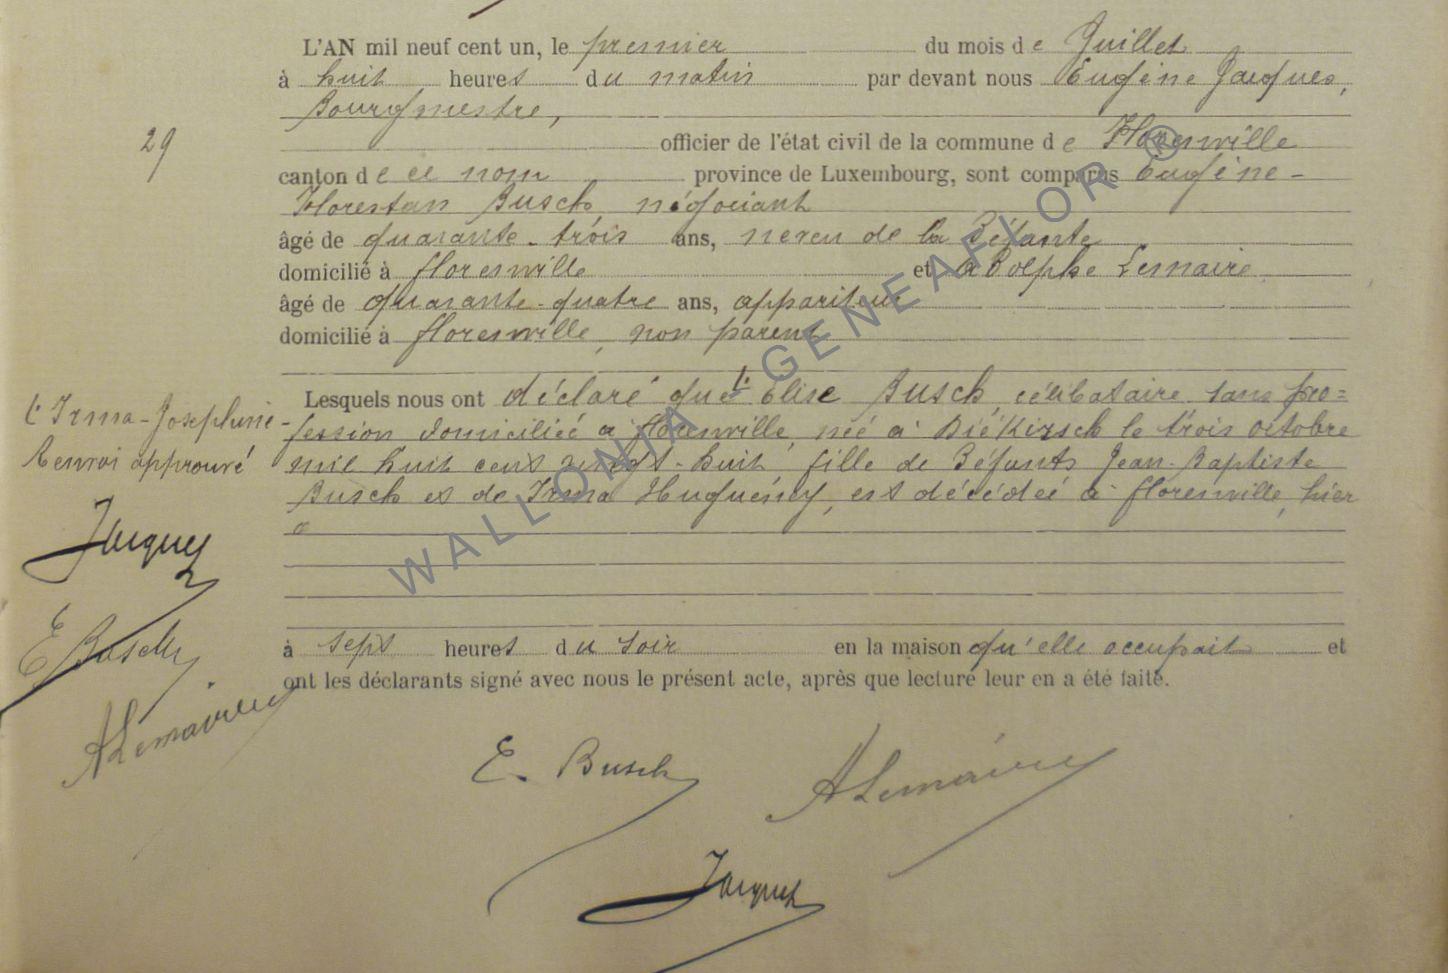 L'AN mil neuf cent un, le premier du mois de Juillet
à huit heures du matin par devant nous Eugène Jacques,
Bourgmestre,
29
officier de l'état civil de la commune de Florenville
canton de ce nom province de Luxembourg, sont comparus Eugène-
Florestan Busch, négociant
âgé de quarante-trois ans, neveu de la Défunte
domicilié à florenville et Adolphe Lemaire
âgé de quarante-quatre ans, appariteur
domicilié à florenville, non parent
Lesquels nous ont déclaré que 1: Elise Busch, célibataire sans pro=
fession domiciliée à florenville, née à Diékirsch le trois octobre
mil huit cent vingt-huit, fille de Défunts Jean-Baptiste
Busch et de Irma Huguény, est décédée à florenville, hier
1: Irma-Joséphine-
Renvoi approuvé
Jacques
E Busch
ALemaire
à sept heures du soir en la maison qu'elle occupait et
ont les déclarants signé avec nous le présent acte, après que lecture leur en a été faite.
E. Busch
ALemaire
Jacques
WALLONIA GENEAFLOR ®